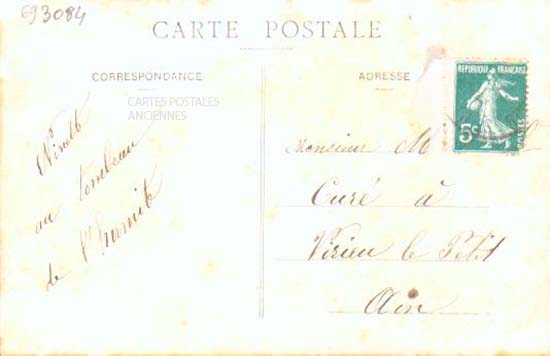 693084
CARTE POSTALE
CORRESPONDANCE
CARTES POSTALES
ANCIENNES
au tombeau
de l'hermite
ADRESSE
REPUBLIQUE FRANÇAISE
5c
POSTES
Monsieur M
Curé à
Virieu le Petit
Ain